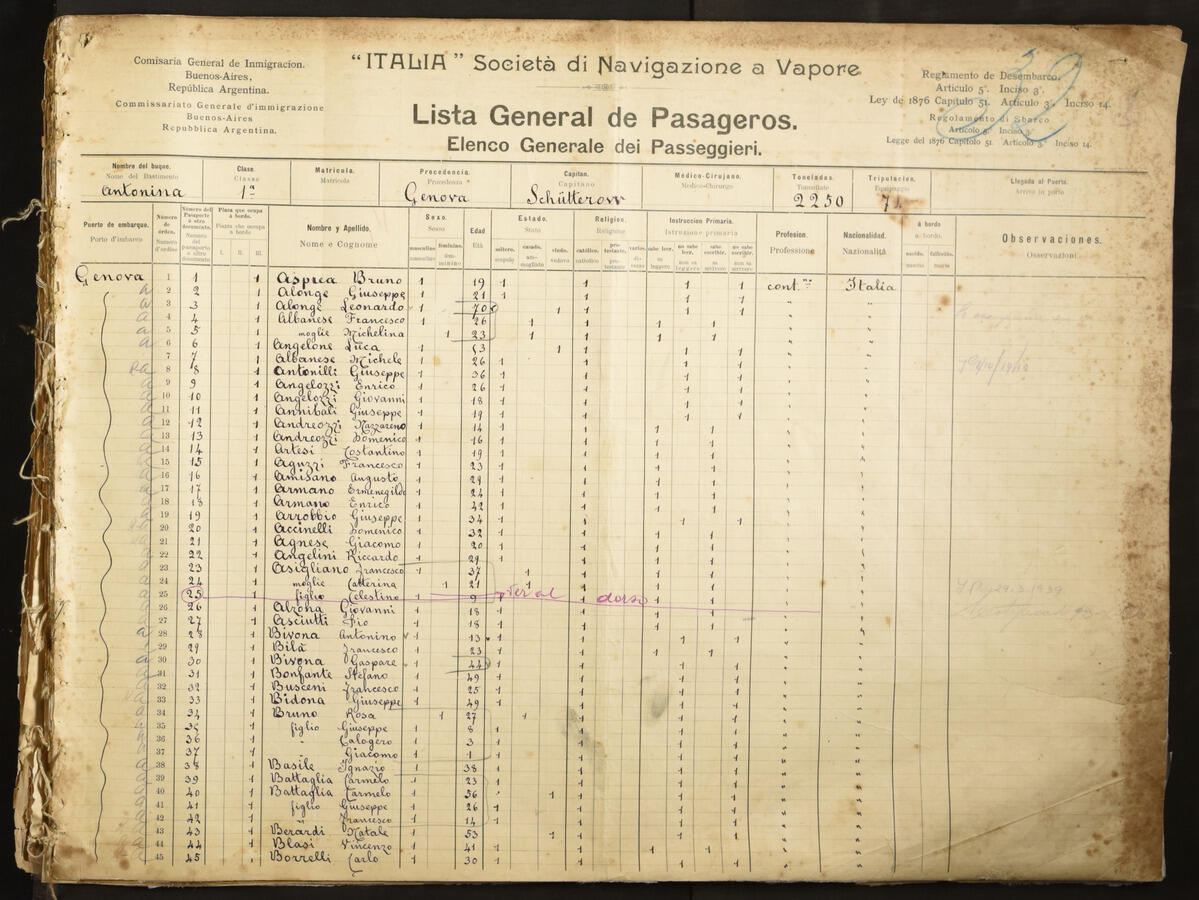 Comisaria General de Inmigracion.
Buenos-Aires,
República Argentina.
Commissariato Generale d'immigrazione
Buenos-Aires
Repubblica Argentina.
"ITALIA" Società di Navigazione a Vapore
Lista General de Pasageros.
Elenco Generale dei Passeggieri.
Reglamento de Desembarco.
Articulo 5º. Inciso 3º.
Ley de 1876 Capitulo 51. Articulo 3º. Inciso 14.
Regolamento di Sbarco
Articolo 5. Inciso 3
Legge del 1876 Capitolo 51. Articolo 3. Inciso 14.
Nombre del buque. Clase. Matricula. Procedencia. Capitan. Médico-Cirujano. Toneladas. Tripulacion. Llegada al Puerto.
Nome del Bastimento Classe Matricola Procedenza Capitano Medico-Chirurgo Tonnellate Equipaggio Arrivo in porto
Antonina 1ª Genova Schütterow 2250
Puerto de embarque. Número de órden. Número del Pasaporte ú otro documento. Plaza que ocupa á bordo. Nombre y Apellido. Sexo. Edad Estado. Religion. Instruccion Primaria. Profesion. Nacionalidad. á bordo Observaciones.
Porto d'imbarco Numero d'ordine Numero del passaporto o altro documento Piazza che occupa a bordo I. II. III. Nome e Cognome Sesso Età Stato Religione Istruzione primaria Professione Nazionalità a bordo. Osservazioni.
Genova 1 1 1 Asprea Bruno 1 19 1 1 1 1 cont.ne Italia
a 2 2 1 Alonge Giuseppe 1 21 1 1 1 1 " "
a 3 3 1 Alonge Leonardo 1 70 1 1 1 1 " "
a 4 4 1 Albanese Francesco 1 26 1 1 1 1 " "
a 5 5 1 moglie Michelina 1 23 1 1 1 1 " "
a 6 6 1 Angelone Luca 1 53 1 1 1 1 " "
7 7 1 Albanese Michele 1 26 1 1 1 1 " "
8 8 1 Antonilli Giuseppe 1 36 1 1 1 1 " "
a 9 9 1 Angelozzi Enrico 1 26 1 1 1 1 " "
a 10 10 1 Angelozzi Giovanni 1 18 1 1 1 1 " "
a 11 11 1 Annibali Giuseppe 1 19 1 1 1 1 " "
a 12 12 1 Andreozzi Nazzareno 1 14 1 1 1 1 " "
a 13 13 1 Andreozzi Domenico 1 16 1 1 1 1 " "
a 14 14 1 Artesi Costantino 1 19 1 1 1 1 " "
a 15 15 1 Aguzzi Francesco 1 23 1 1 1 1 " "
a 16 16 1 Amisano Augusto 1 29 1 1 1 1 " "
a 17 17 1 Armano Ermenegildo 1 24 1 1 1 1 " "
a 18 18 1 Armano Enrico 1 42 1 1 1 1 " "
a 19 19 1 Arrobbio Giuseppe 1 34 1 1 1 1 " "
a 20 20 1 Accinelli Domenico 1 32 1 1 1 1 " "
a 21 21 1 Agnese Giacomo 1 20 1 1 1 1 " "
a 22 22 1 Angelini Riccardo 1 29 1 1 1 1 " "
a 23 23 1 Asigliano Francesco 1 37 1 1 1 1 " "
a 24 24 1 moglie Catterina 1 21 1 1 1 1 " "
a 25 25 1 figlio Celestino 1 9 1 ver al dorso 1 1 1 " "
a 26 26 1 Alzona Giovanni 1 18 1 1 1 1 " "
a 27 27 1 Asciutti Pio 1 18 1 1 1 1 " "
a 28 28 1 Bivona Antonino 1 13 1 1 1 1 " "
a 29 29 1 Bilà Francesco 1 23 1 1 1 1 " "
a 30 30 1 Bivona Gaspare 1 44 1 1 1 1 " "
a 31 31 1 Bonfante Stefano 1 49 1 1 1 1 " "
a 32 32 1 Busceni Francesco 1 25 1 1 1 1 " "
a 33 33 1 Bidona Giuseppe 1 49 1 1 1 1 " "
a 34 34 1 Bruno Rosa 1 27 1 1 1 1 " "
a 35 35 1 figlio Giuseppe 1 8 1 1 1 1 " "
a 36 36 1 " Calogero 1 3 1 1 1 1 " "
a 37 37 1 " Giacomo 1 1 1 1 1 1 " "
a 38 38 1 Basile Ignazio 1 38 1 1 1 1 " "
a 39 39 1 Battaglia Carmelo 1 23 1 1 1 1 " "
a 40 40 1 Battaglia Carmelo 1 56 1 1 1 1 " "
a 41 41 1 figlio Giuseppe 1 26 1 1 1 1 " "
a 42 42 1 " Francesco 1 14 1 1 1 1 " "
a 43 43 1 Berardi Natale 1 53 1 1 1 1 " "
a 44 44 1 Blasi Vincenzo 1 41 1 1 1 1 " "
a 45 45 1 Borrelli Carlo 1 30 1 1 1 1 " "